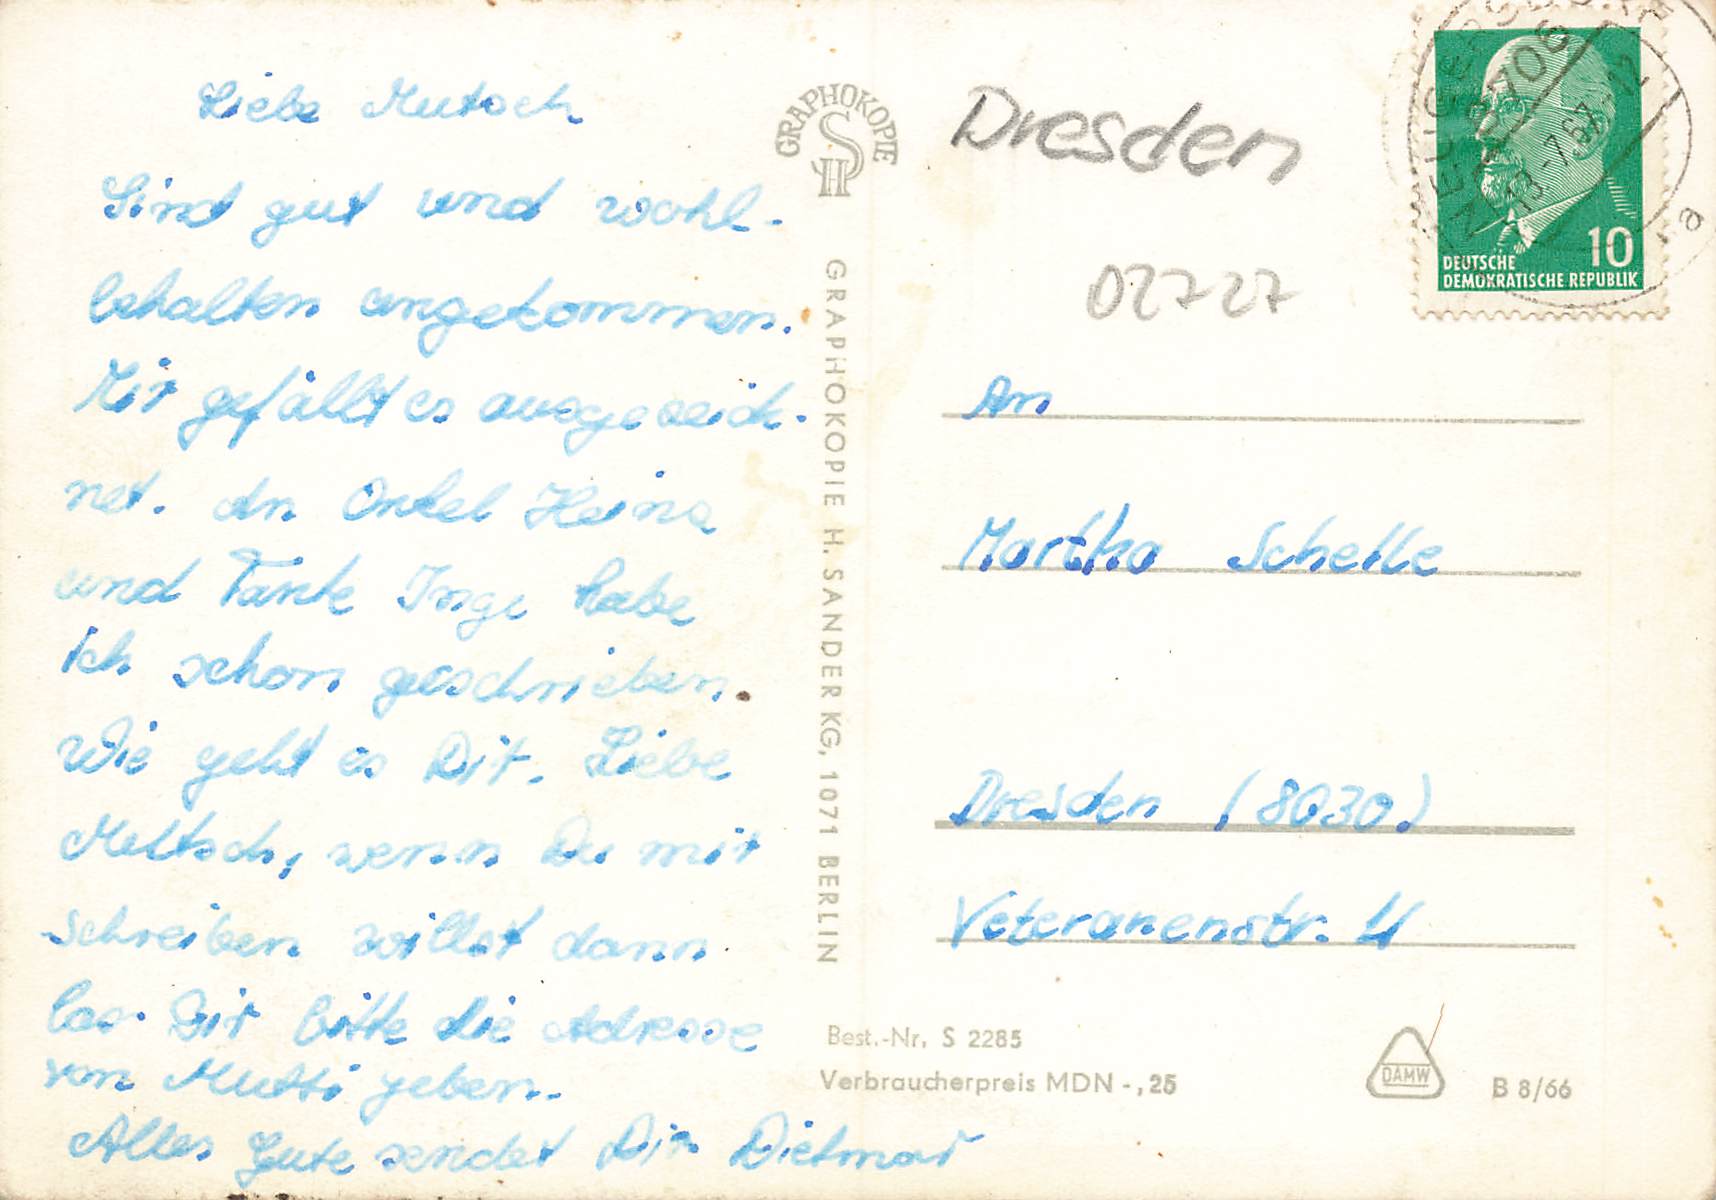 Liebe Mutsch
Sind gut und wohl-
behalten angekommen.
Mir gefällt es ausgezeich-
net. An Onkel Heinz
und Tante Inge habe
ich schon geschrieben.
Wie geht es Dir. Liebe
Multsch, wenn Du mir
schreiben willst dann
las Dir bitte die Adresse
von Mutti geben.
Alles Gute sendet Dir Dietmar
GRAPHOKOPIE
HS
GRAPHOKOPIE H. SANDER KG, 1071 BERLIN
Dresden
02727
NEUGERSDORF
8706
13.-7.67-12
a
10
DEUTSCHE
DEMOKRATISCHE REPUBLIK
An
Martha Schelle
Dresden (8030)
Veteranenstr. 4
Best.-Nr. S 2285
Verbraucherpreis MDN -,25
DAMW
B 8/66